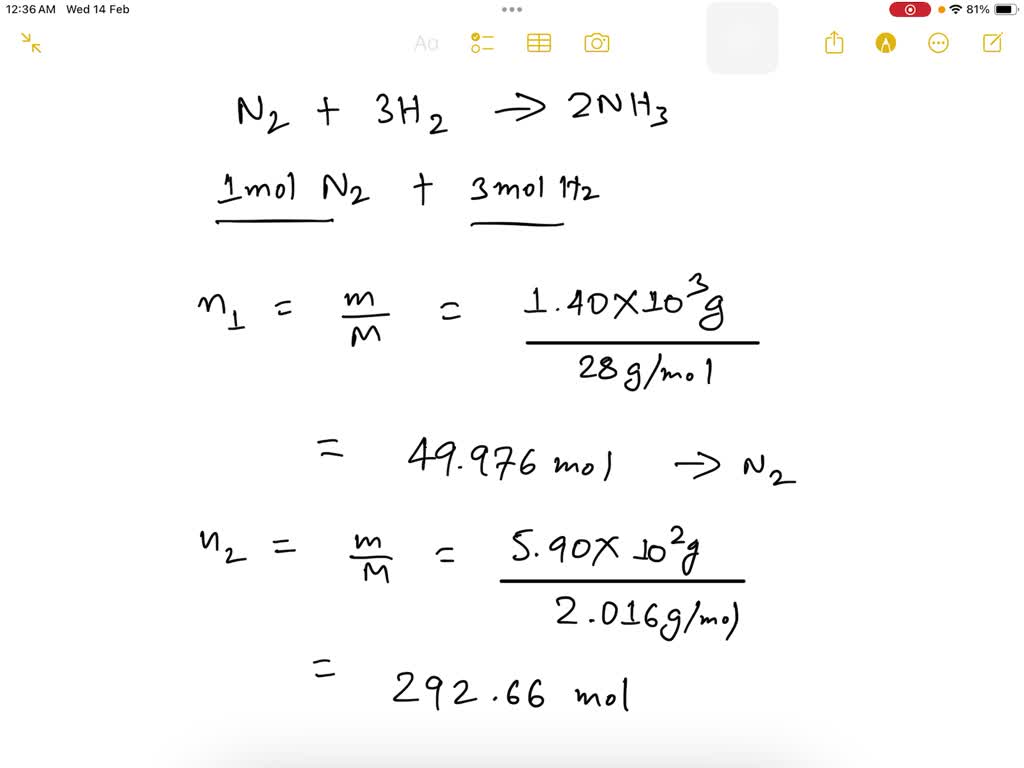 12:36 AM Wed 14 Feb 81%
Aa
N₂ + 3H₂ → 2NH₃
1mol N₂ + 3mol H₂
n₁ = m/M = 1.40×10³g / 28g/mol
= 49.976 mol → N₂
n₂ = m/M = 5.90×10²g / 2.016g/mol
= 292.66 mol